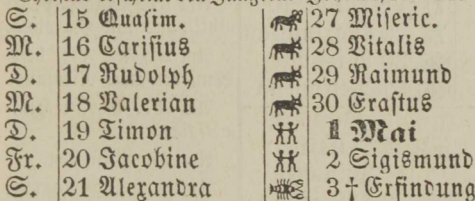 S. 15 Quasim. 27 Miseric.
M. 16 Carisius 28 Vitalis
D. 17 Rudolph 29 Raimund
M. 18 Valerian 30 Erastus
D. 19 Timon 1 Mai
Fr. 20 Jacobine 2 Sigismund
S. 21 Alexandra 3† Erfindung